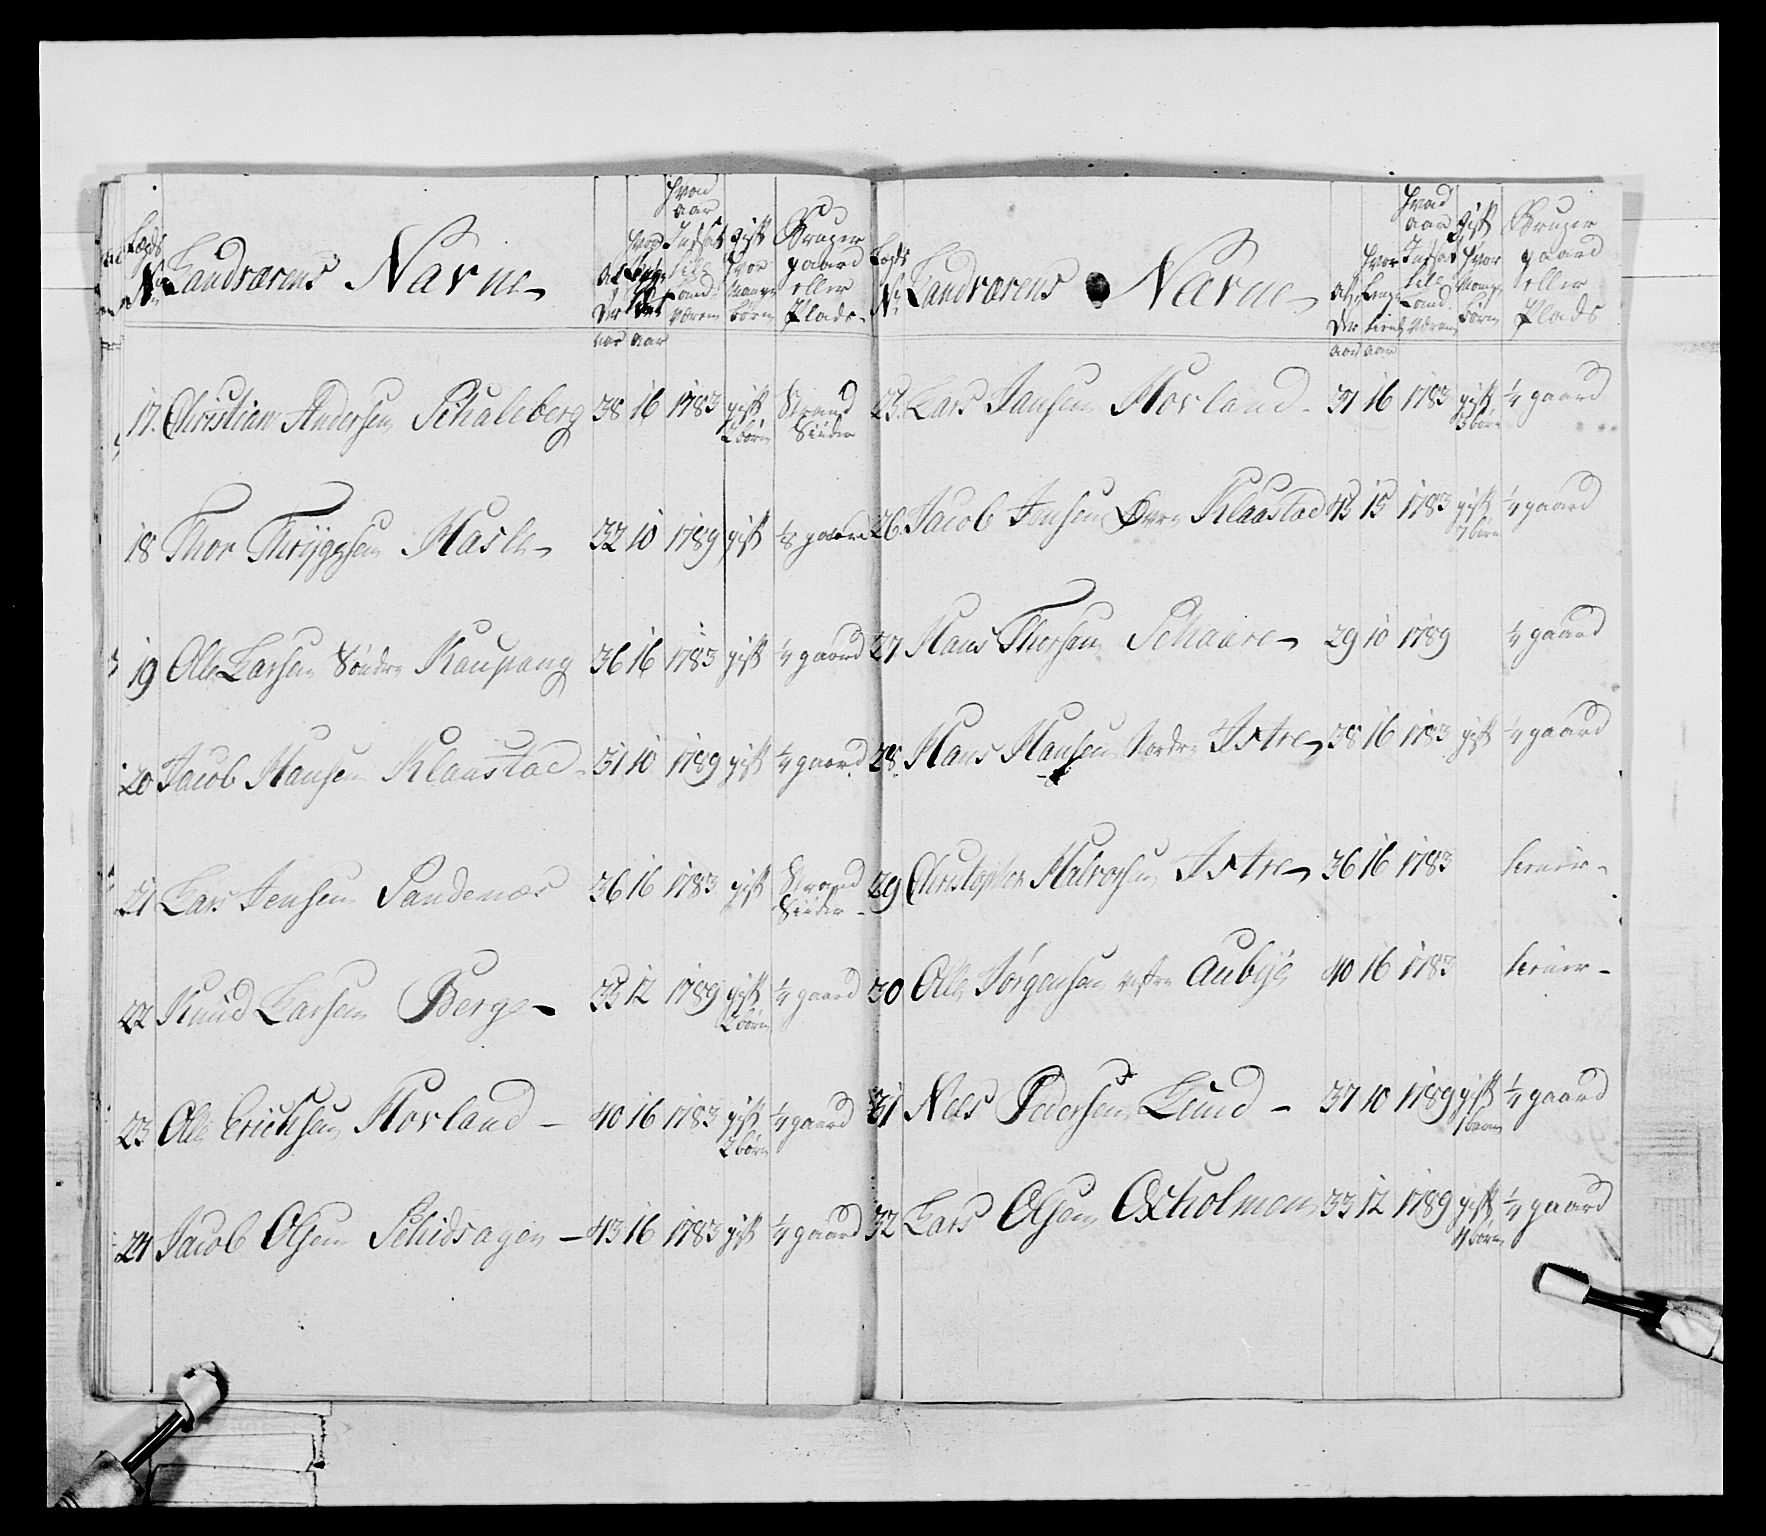 Lægds No Landværens Navne
Al der aar
Hvor Lenge tient aar
Hvad aar Indsat till Land Væren
gift hvor Mange børn
Bruger gaard eller Plads
17. Christian Andersen Schaleberg 38 16 1783 gift 2 børn Strand Siider
18 Thor Thryggsen Hasle 32 10 1789 gift 1/8 gaard
19 Olle Larsen Søndre Kaupang 36 16 1783 gift 1/4 gaard
20 Jacob Hansen Klaastad 31 10 1789 gift 1/4 gaard
21 Lars Jensen Sandenæs 36 16 1783 gift Strand Siider
22 Knud Larsen Berge 33 12 1789 gift 2 børn 1/4 gaard
23 Olle Erichsen Hovland 40 16 1783 gift 2 børn 1/4 gaard
24 Jacob Olsen Schidsagen 43 16 1783 gift 1/4 gaard
Lægds No Landværens Navne
Al der aar
Hvor Lenge tient aar
Hvad aar Indsat till Land Væren
Gift Hvor Mange børn
Bruger gaard eller Plads
25. Lars Jansen Hovland 37 16 1783 gift 3 børn 1/4 gaard
26. Jacob Jensen Øvre Klaastad 43 15 1783 gift 7 børn 1/4 gaard
27 Hans Thorsen Schaare 29 10 1789 1/4 gaard
28. Hans Hansen Nordre Istre 38 16 1783 gift 1/4 gaard
29 Christopher Halvorsen Istre 36 16 1783
30 Olle Jørgensen vestre Aubÿe 40 16 1783
31 Niels Pedersen Lund 37 10 1789 gift 1 barn 1/4 gaard
32 Lars Olsen Oxholmen 33 12 1789 gift 4 børn 1/4 gaard